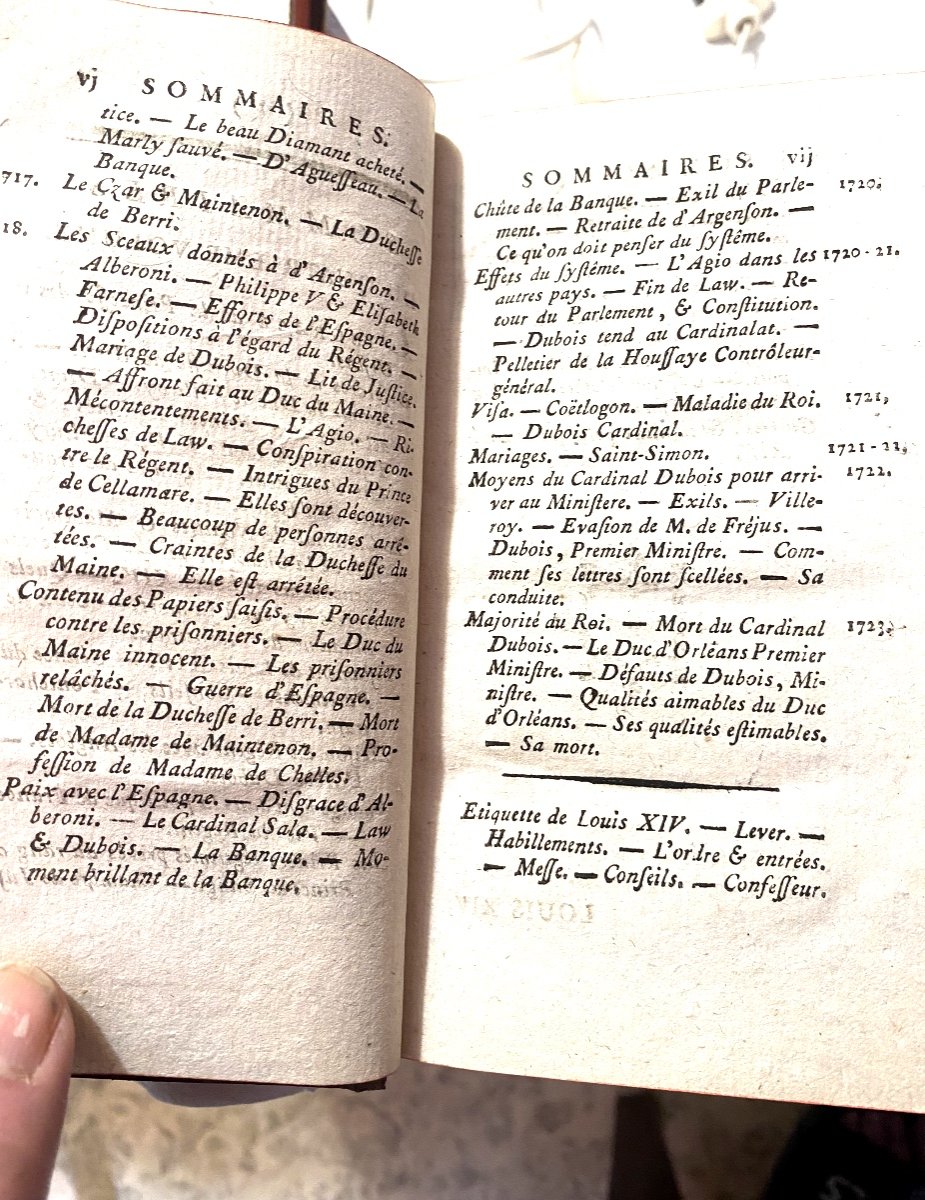 vj SOMMAIRES.
tice. — Le beau Diamant acheté. —
Marly ſauvé. — D'Agueſſeau. — La
Banque.
717. Le Czar & Maintenon. — La Ducheſſe
de Berri.
18. Les Sceaux donnés à d'Argenſon. —
Alberoni. — Philippe V & Eliſabeth
Farneſe. — Efforts de l'Eſpagne. —
Diſpoſitions à l'égard du Régent. —
Mariage de Dubois. — Lit de Juſtice.
— Affront fait au Duc du Maine. —
Mécontentements. — L'Agio. — Ri-
cheſſes de Law. — Conſpiration con-
tre le Régent. — Intrigues du Prince
de Cellamare. — Elles ſont découver-
tes. — Beaucoup de perſonnes arrê-
tées. — Craintes de la Ducheſſe du
Maine. — Elle eſt arrêtée.
Contenu des Papiers ſaiſis. — Procédure
contre les priſonniers. — Le Duc du
Maine innocent. — Les priſonniers
relâchés. — Guerre d'Eſpagne. —
Mort de la Ducheſſe de Berri. — Mort
de Madame de Maintenon. — Pro-
feſſion de Madame de Chelles.
Paix avec l'Eſpagne. — Diſgrace d'Al-
beroni. — Le Cardinal Sala. — Law
& Dubois. — La Banque. — Mo-
ment brillant de la Banque.
SOMMAIRES. vij
Chûte de la Banque. — Exil du Parle- 1720.
ment. — Retraite de d'Argenſon. —
Ce qu'on doit penſer du ſyſtême.
Effets du ſyſtême. — L'Agio dans les 1720-21.
autres pays. — Fin de Law. — Re-
tour du Parlement, & Conſtitution.
— Dubois tend au Cardinalat. —
Pelletier de la Houſſaye Contrôleur-
général.
Viſa. — Coëtlogon. — Maladie du Roi. 1721,
— Dubois Cardinal.
Mariages. — Saint-Simon. 1721-22,
Moyens du Cardinal Dubois pour arri- 1722.
ver au Miniſtere. — Exils. — Ville-
roy. — Evaſion de M. de Fréjus. —
Dubois, Premier Miniſtre. — Com-
ment ſes lettres ſont ſcellées. — Sa
conduite.
Majorité du Roi. — Mort du Cardinal 1723.
Dubois. — Le Duc d'Orléans Premier
Miniſtre. — Défauts de Dubois, Mi-
niſtre. — Qualités aimables du Duc
d'Orléans. — Ses qualités eſtimables.
— Sa mort.
Etiquette de Louis XIV. — Lever. —
Habillements. — L'ordre & entrées.
— Meſſe. — Conſeils. — Confeſſeur.